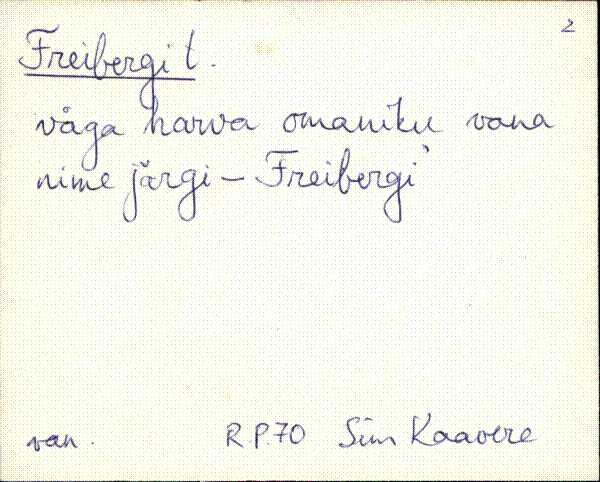 2
Freibergi t.
väga harva omaniku vana
nime järgi – Freibergi`
van. R.P.70 Sim Kaavere